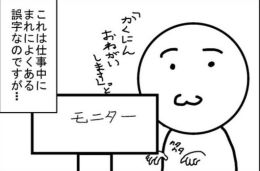 これは仕事中に
まれによくある
誤字なのですが…
「かくにん
おねがい
します」と
モニター
ペタ
ペタ